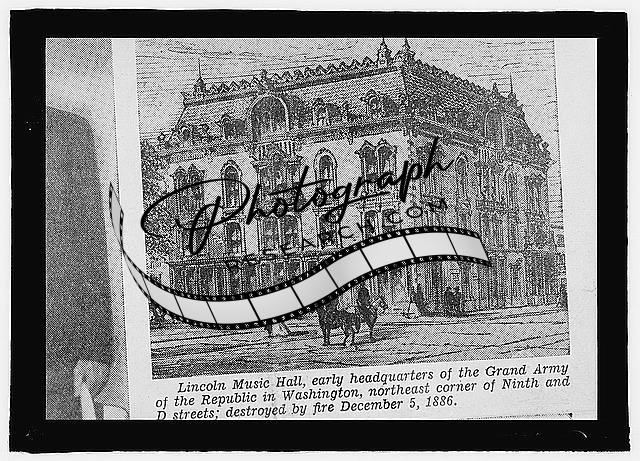 Photograph
RESEARCH.COM
Lincoln Music Hall, early headquarters of the Grand Army
of the Republic in Washington, northeast corner of Ninth and
D streets; destroyed by fire December 5, 1886.